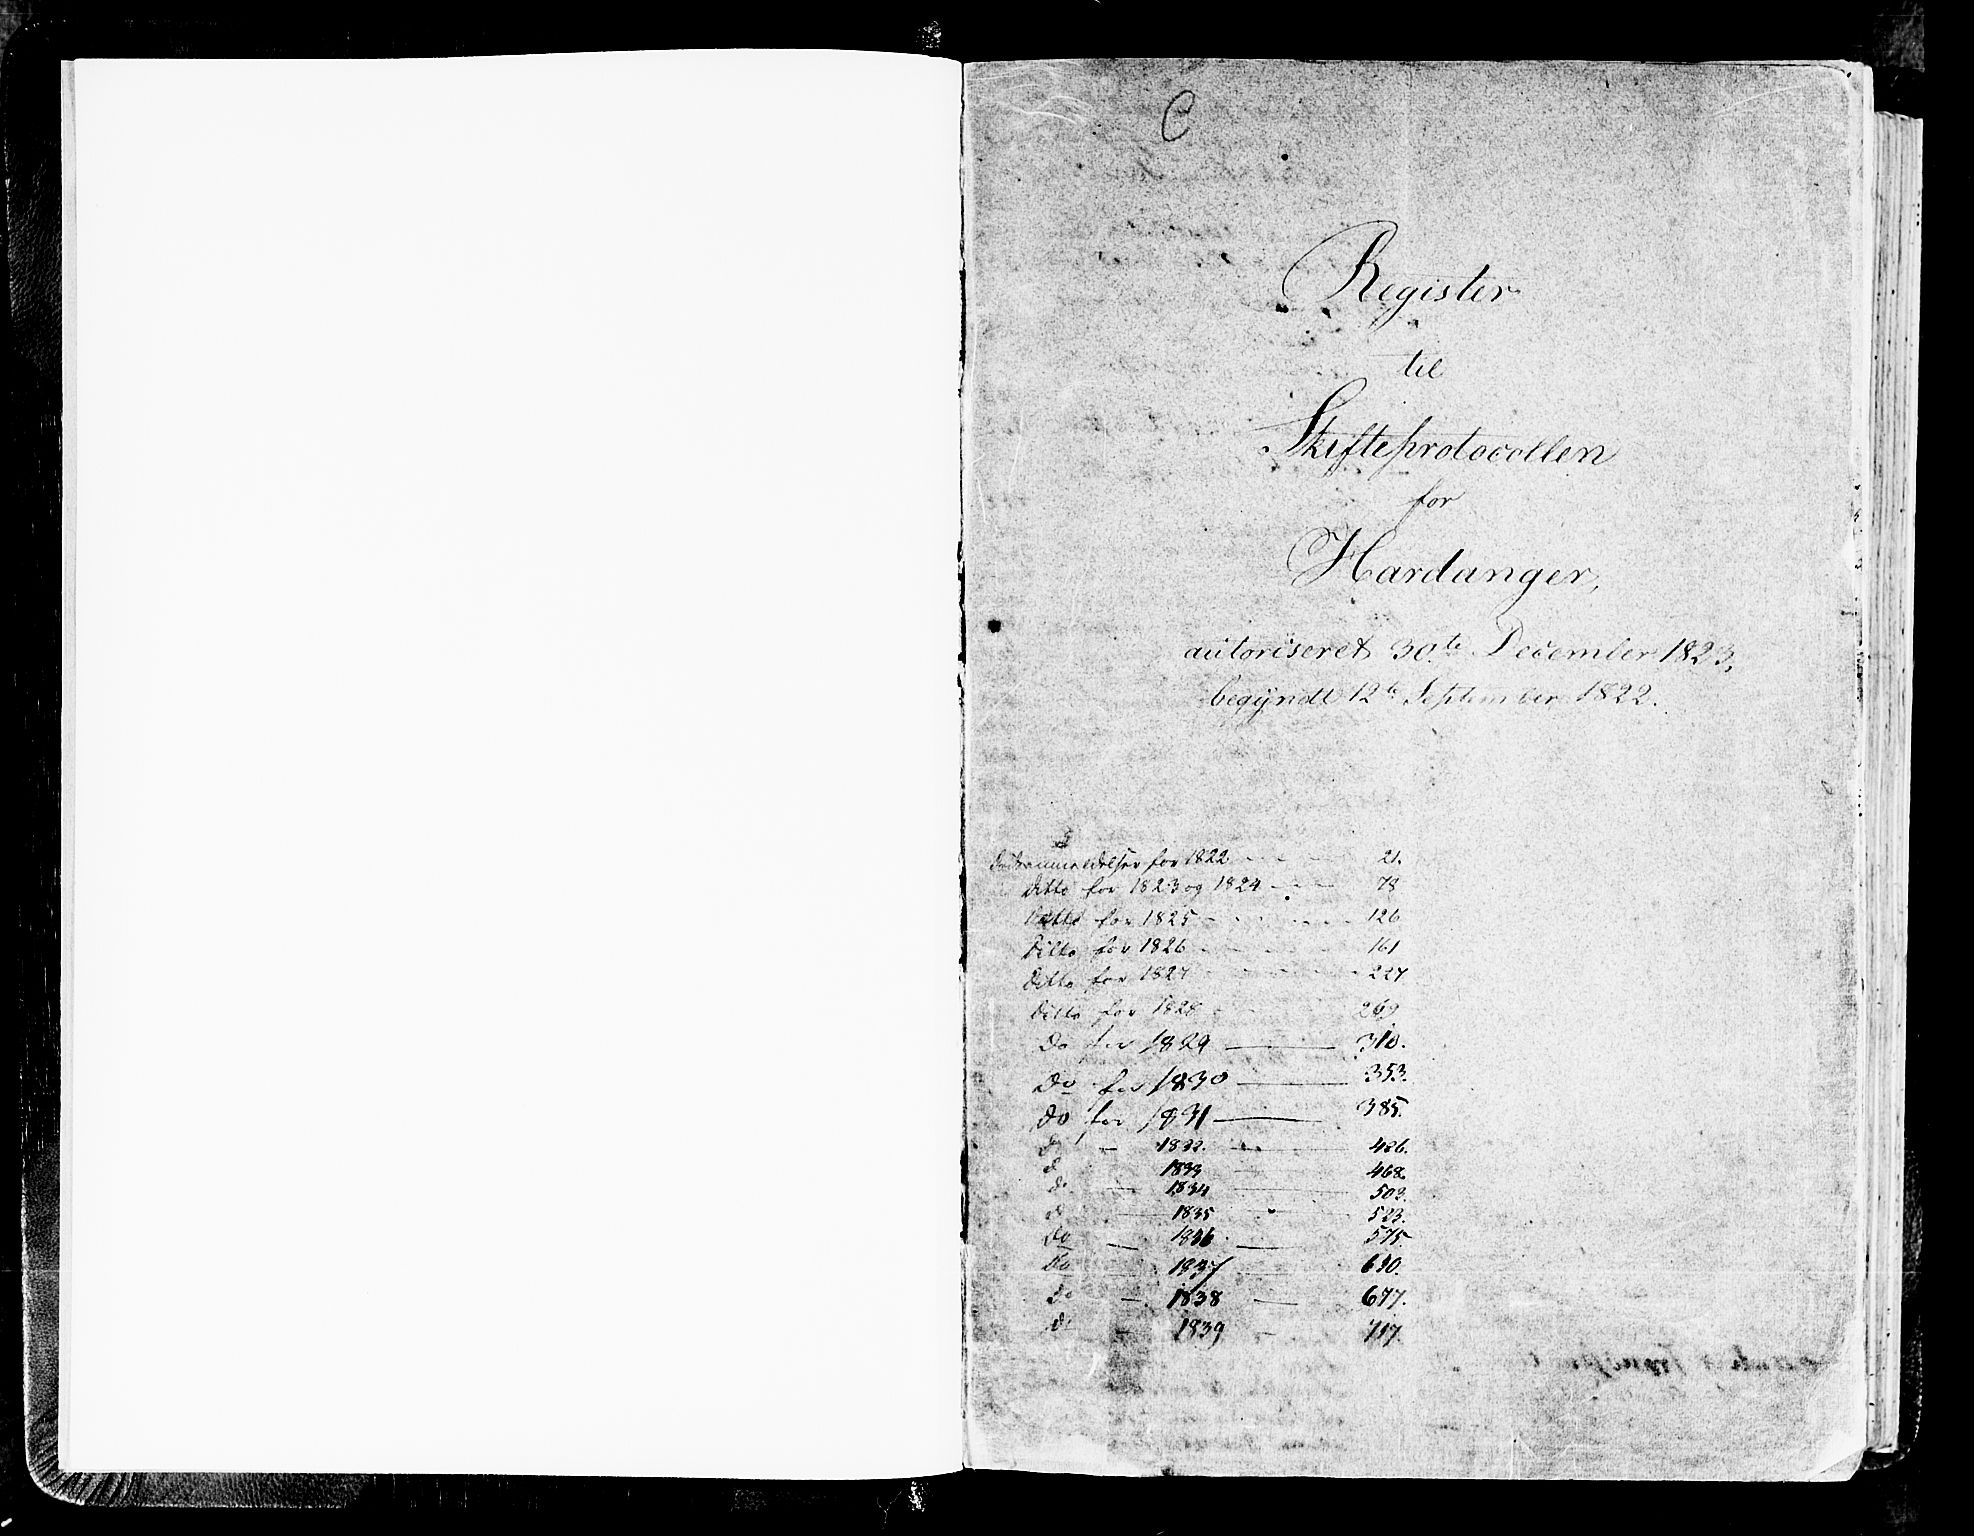 C
Register
til
Skifteprotocollen
for
Hardanger,
autoriseret 30.te December 1823,
begÿndt 12te September 1822.
for 1822 21.
Ditto for 1823 og 1824 78
Ditto for 1825 126
Ditto for 1826 161
Ditto for 1827 227
Ditto for 1828 269
Do for 1829 310.
Do for 1830 353.
Do for 1831 385.
Do — 1832. 426.
Do 1833 468.
Do — 1834 503.
Do — 1835 523.
Do — 1836 — 575
Do — 1837 — 630.
Do — 1838 — 677.
Do — 1839 — 717.